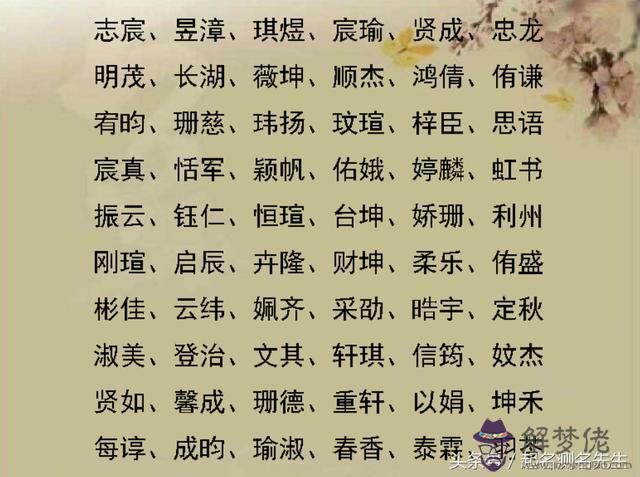 志宸、昱漳、琪煜、宸瑜、贤成、忠龙
明茂、长湖、薇坤、顺杰、鸿倩、侑谦
宥昀、珊慈、玮扬、玟瑄、梓臣、思语
宸真、恬军、颖帆、佑娥、婷麟、虹书
振云、钰仁、恒瑄、台坤、娇珊、利州
刚瑄、启辰、卉隆、财坤、柔乐、侑盛
彬佳、云纬、姵齐、采劭、晧宇、定秋
淑美、登治、文其、轩琪、信筠、妏杰
贤如、馨成、珊德、重轩、以娟、坤禾
每谆、成昀、瑜淑、春香、泰霖、羽琴
解梦佬
头条号/起名测名先生